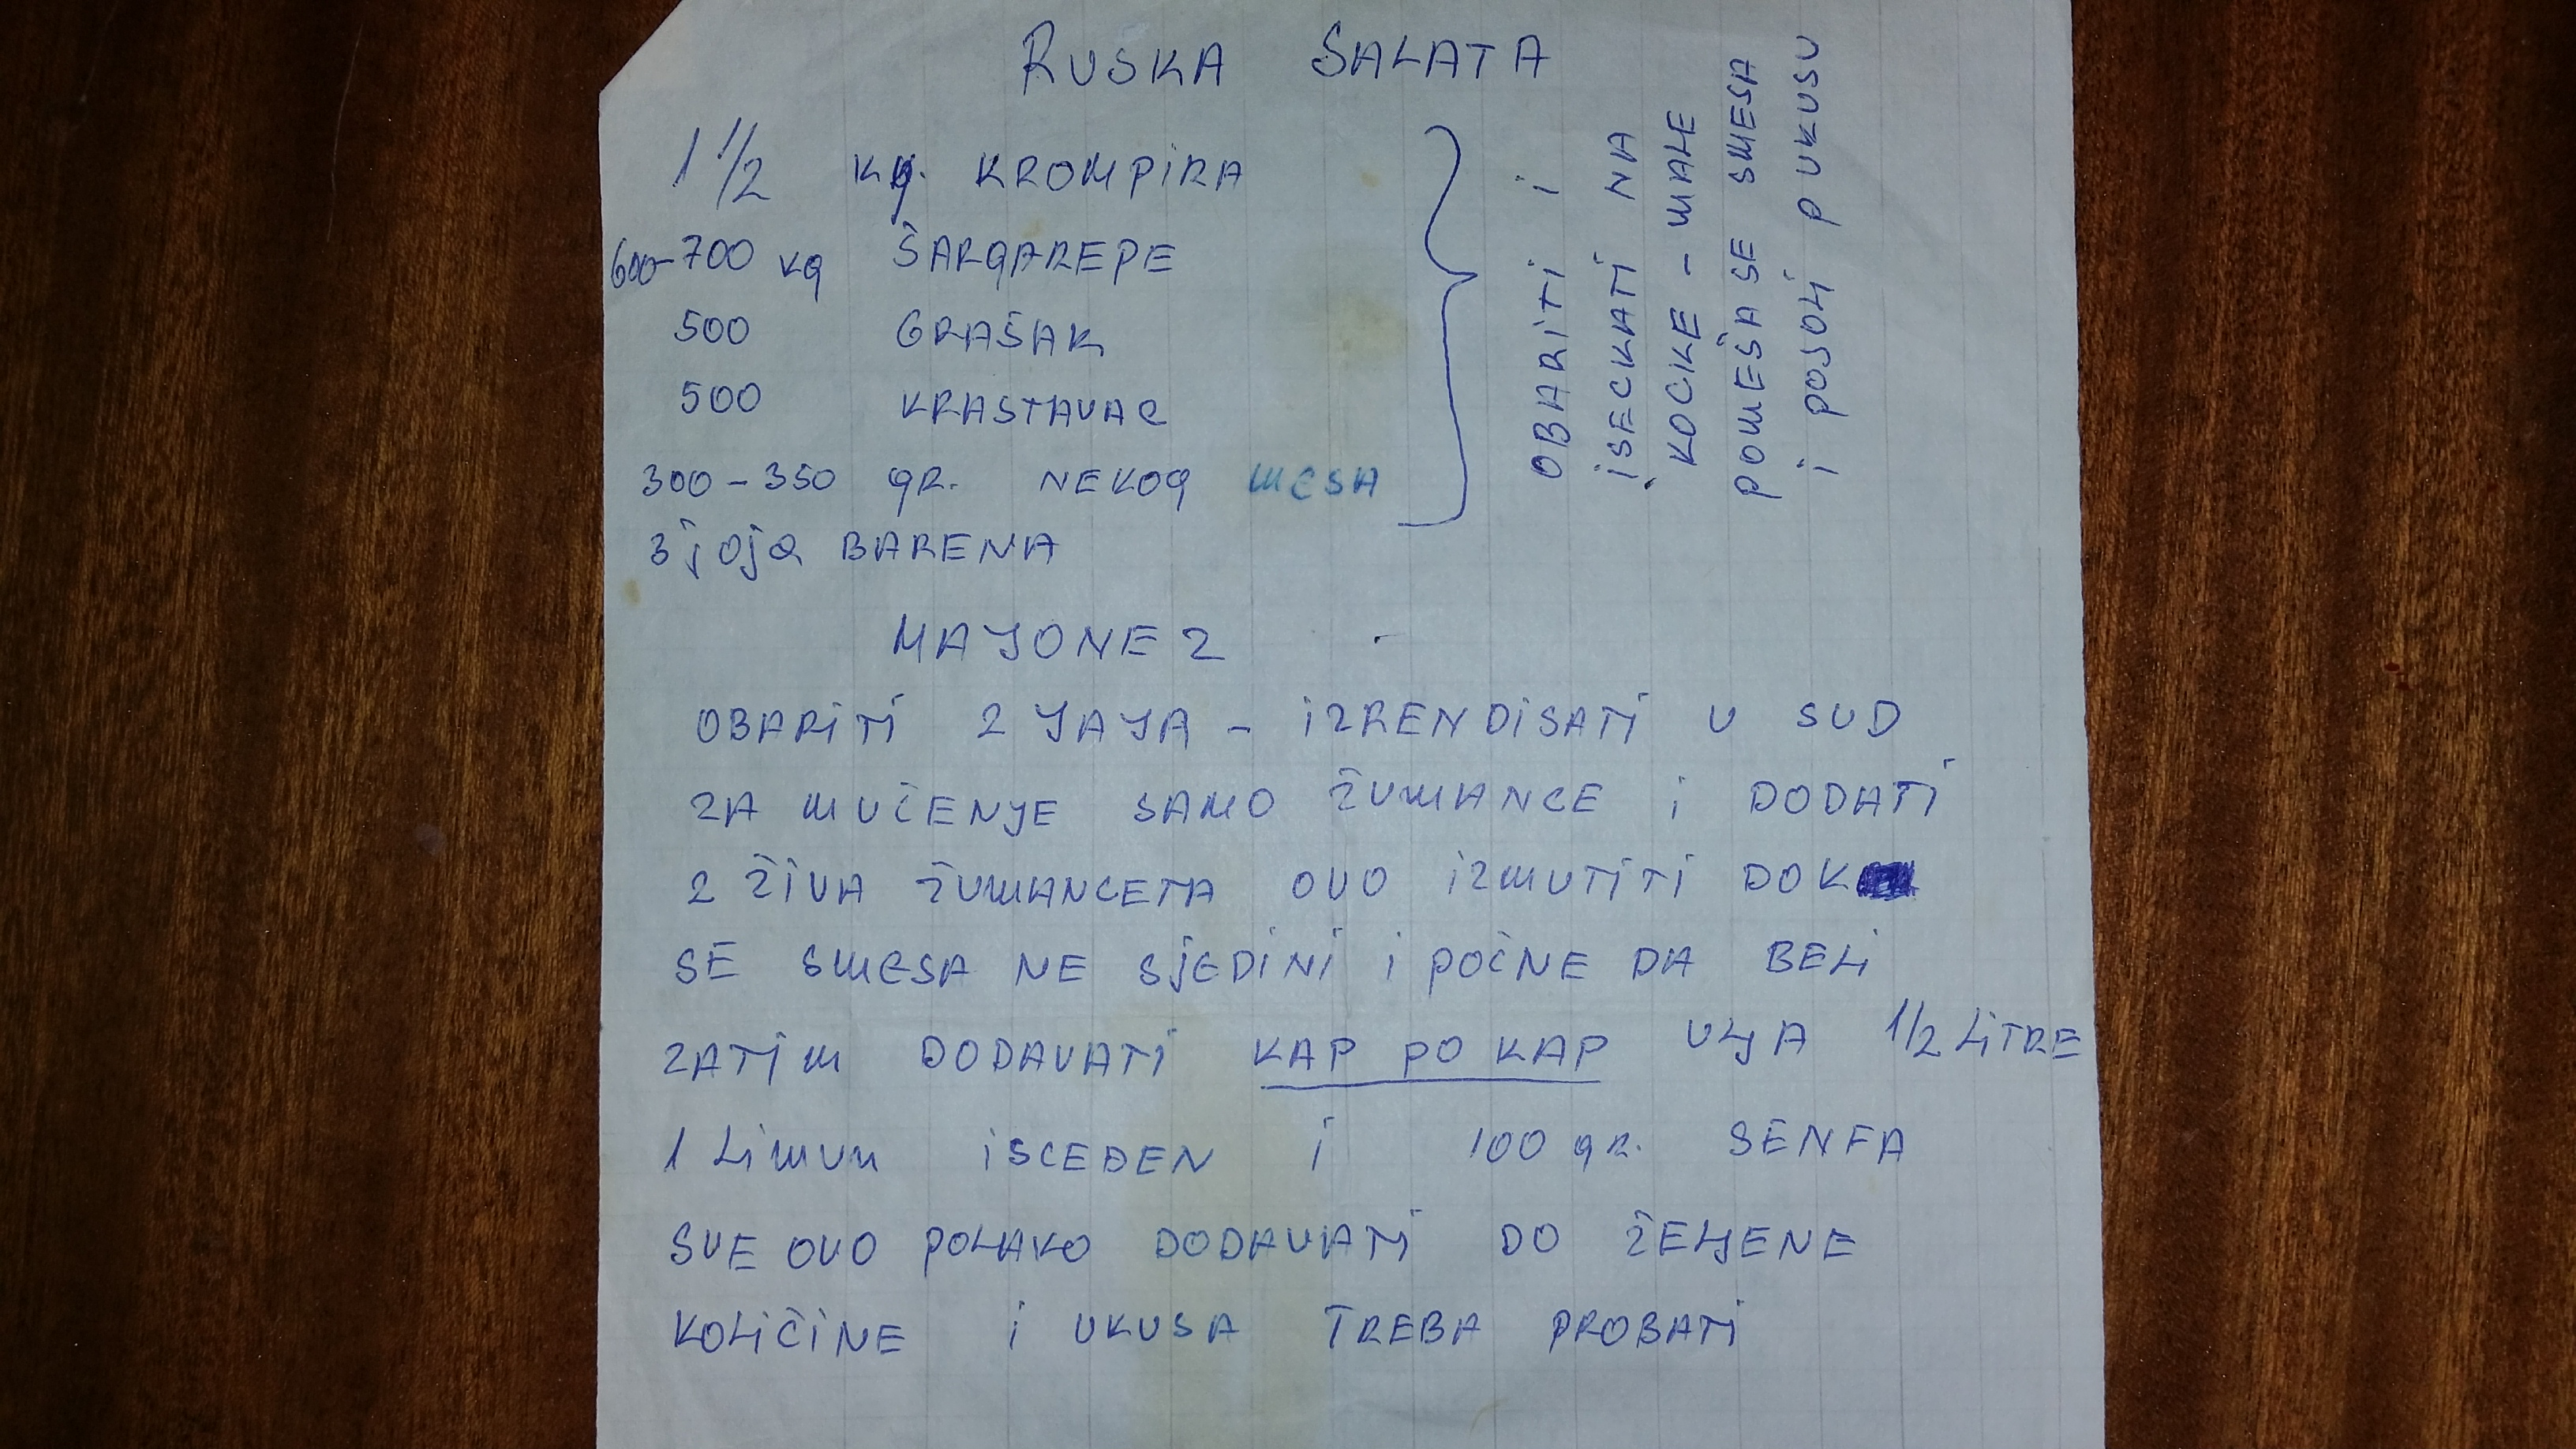 RUSKA SALATA
1 1/2 kg. KROMPIRA
600-700 kg ŠARGAREPE
500 GRAŠAK
500 KRASTAVAC
300-350 gr. NEKOG MESA
3 jaja BARENA
OBARITI i
iSECKATI NA
KOCKE - MALE
POMEŠA SE SMESA
i POSOLI PUKUSU
MAJONEZ
OBARITI 2 JAJA - iZRENDISATI U SUD
ZA MUĆENJE SAMO ŽUMANCE i DODATI
2 ŽIVA ŽUMANCETA OVO iZMUTITI DOK
SE SMESA NE SJEDINI i POČNE DA BELI
ZATIM DODAVATI KAP PO KAP ULJA 1/2 LITRE
1 LIMUN iSCEĐEN i 100 gr. SENFA
SVE OVO POLAKO DODAVATI DO ŽELJENE
KOLIČINE i UKUSA TREBA PROBATI